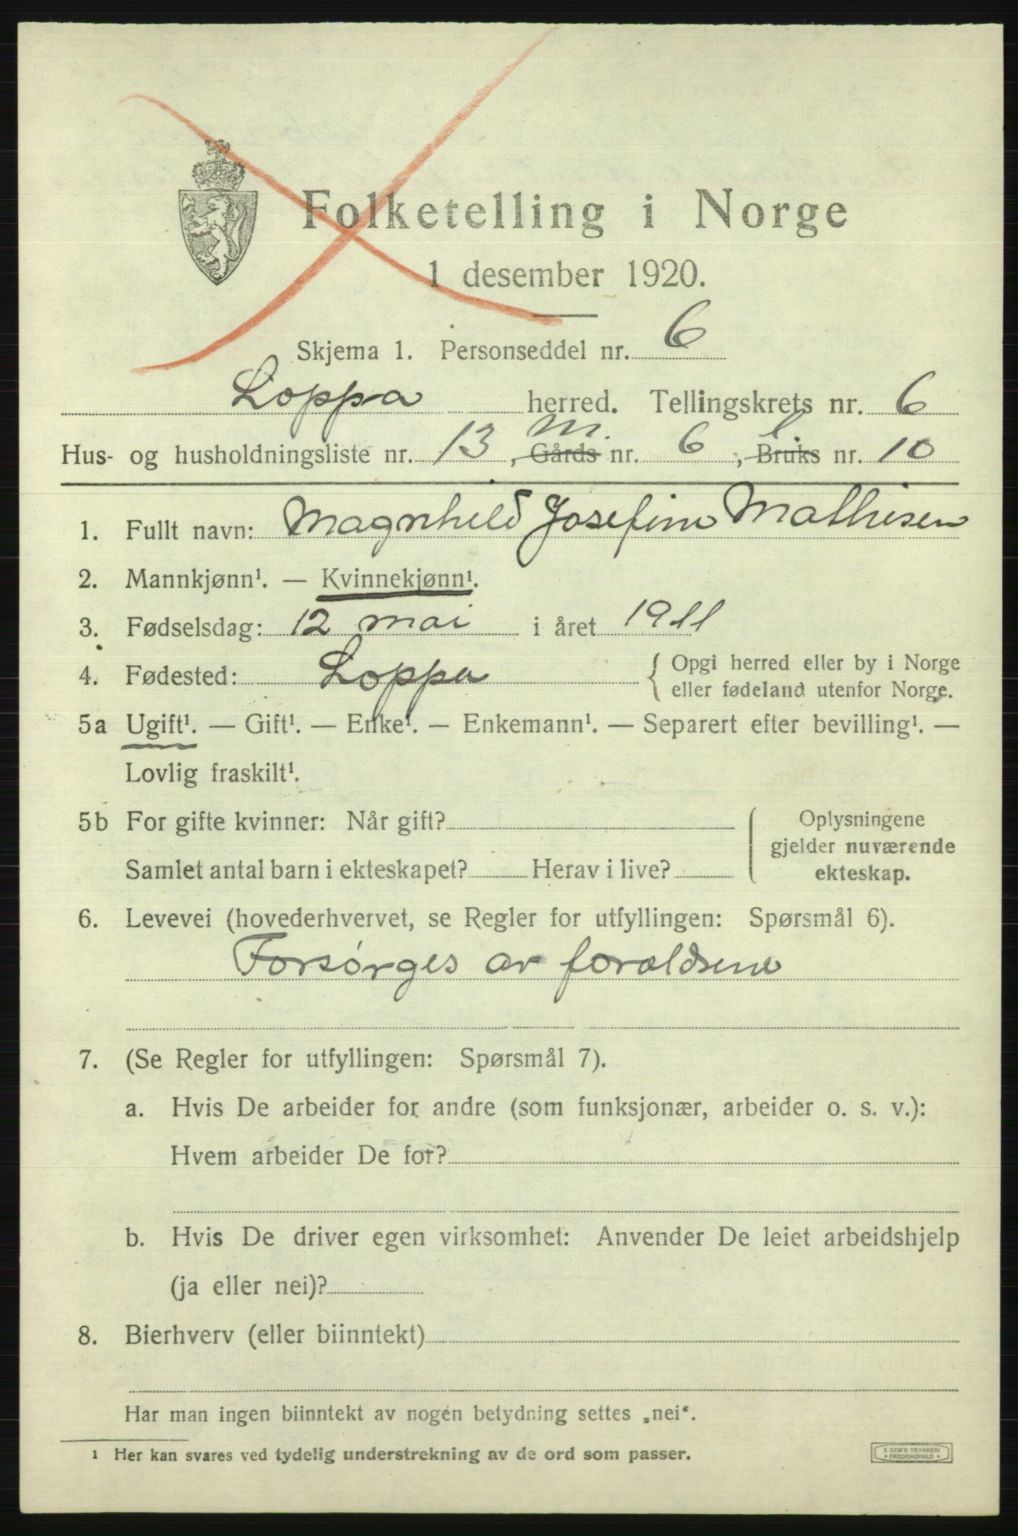 Folketelling i Norge
1 desember 1920.
Skjema 1. Personseddel nr. 6
Loppa herred. Tellingskrets nr. 6
Hus- og husholdningsliste nr. 13, Gårds m. nr. 6, Bruks l. nr. 10
1. Fullt navn: Magnhild Josefine Mathisen
2. Mannkjønn¹. — Kvinnekjønn¹.
3. Fødselsdag: 12 mai i året 1911
4. Fødested: Loppa { Opgi herred eller by i Norge
eller fødeland utenfor Norge.
5a Ugift¹. — Gift¹. — Enke¹. — Enkemann¹. — Separert efter bevilling¹. —
Lovlig fraskilt¹.
5b For gifte kvinner: Når gift? { Oplysningene
gjelder nuværende
Samlet antal barn i ekteskapet? Herav i live? ekteskap.
6. Levevei (hovederhvervet, se Regler for utfyllingen: Spørsmål 6).
Forsørges av forældrene
7. (Se Regler for utfyllingen: Spørsmål 7).
a. Hvis De arbeider for andre (som funksjonær, arbeider o. s. v.):
Hvem arbeider De for?
b. Hvis De driver egen virksomhet: Anvender De leiet arbeidshjelp
(ja eller nei)?
8. Bierhverv (eller biinntekt)
Har man ingen biinntekt av nogen betydning settes „nei“.
¹ Her kan svares ved tydelig understrekning av de ord som passer.
E. SEM'S TRYKKERI
• FREDRIKSHALD •